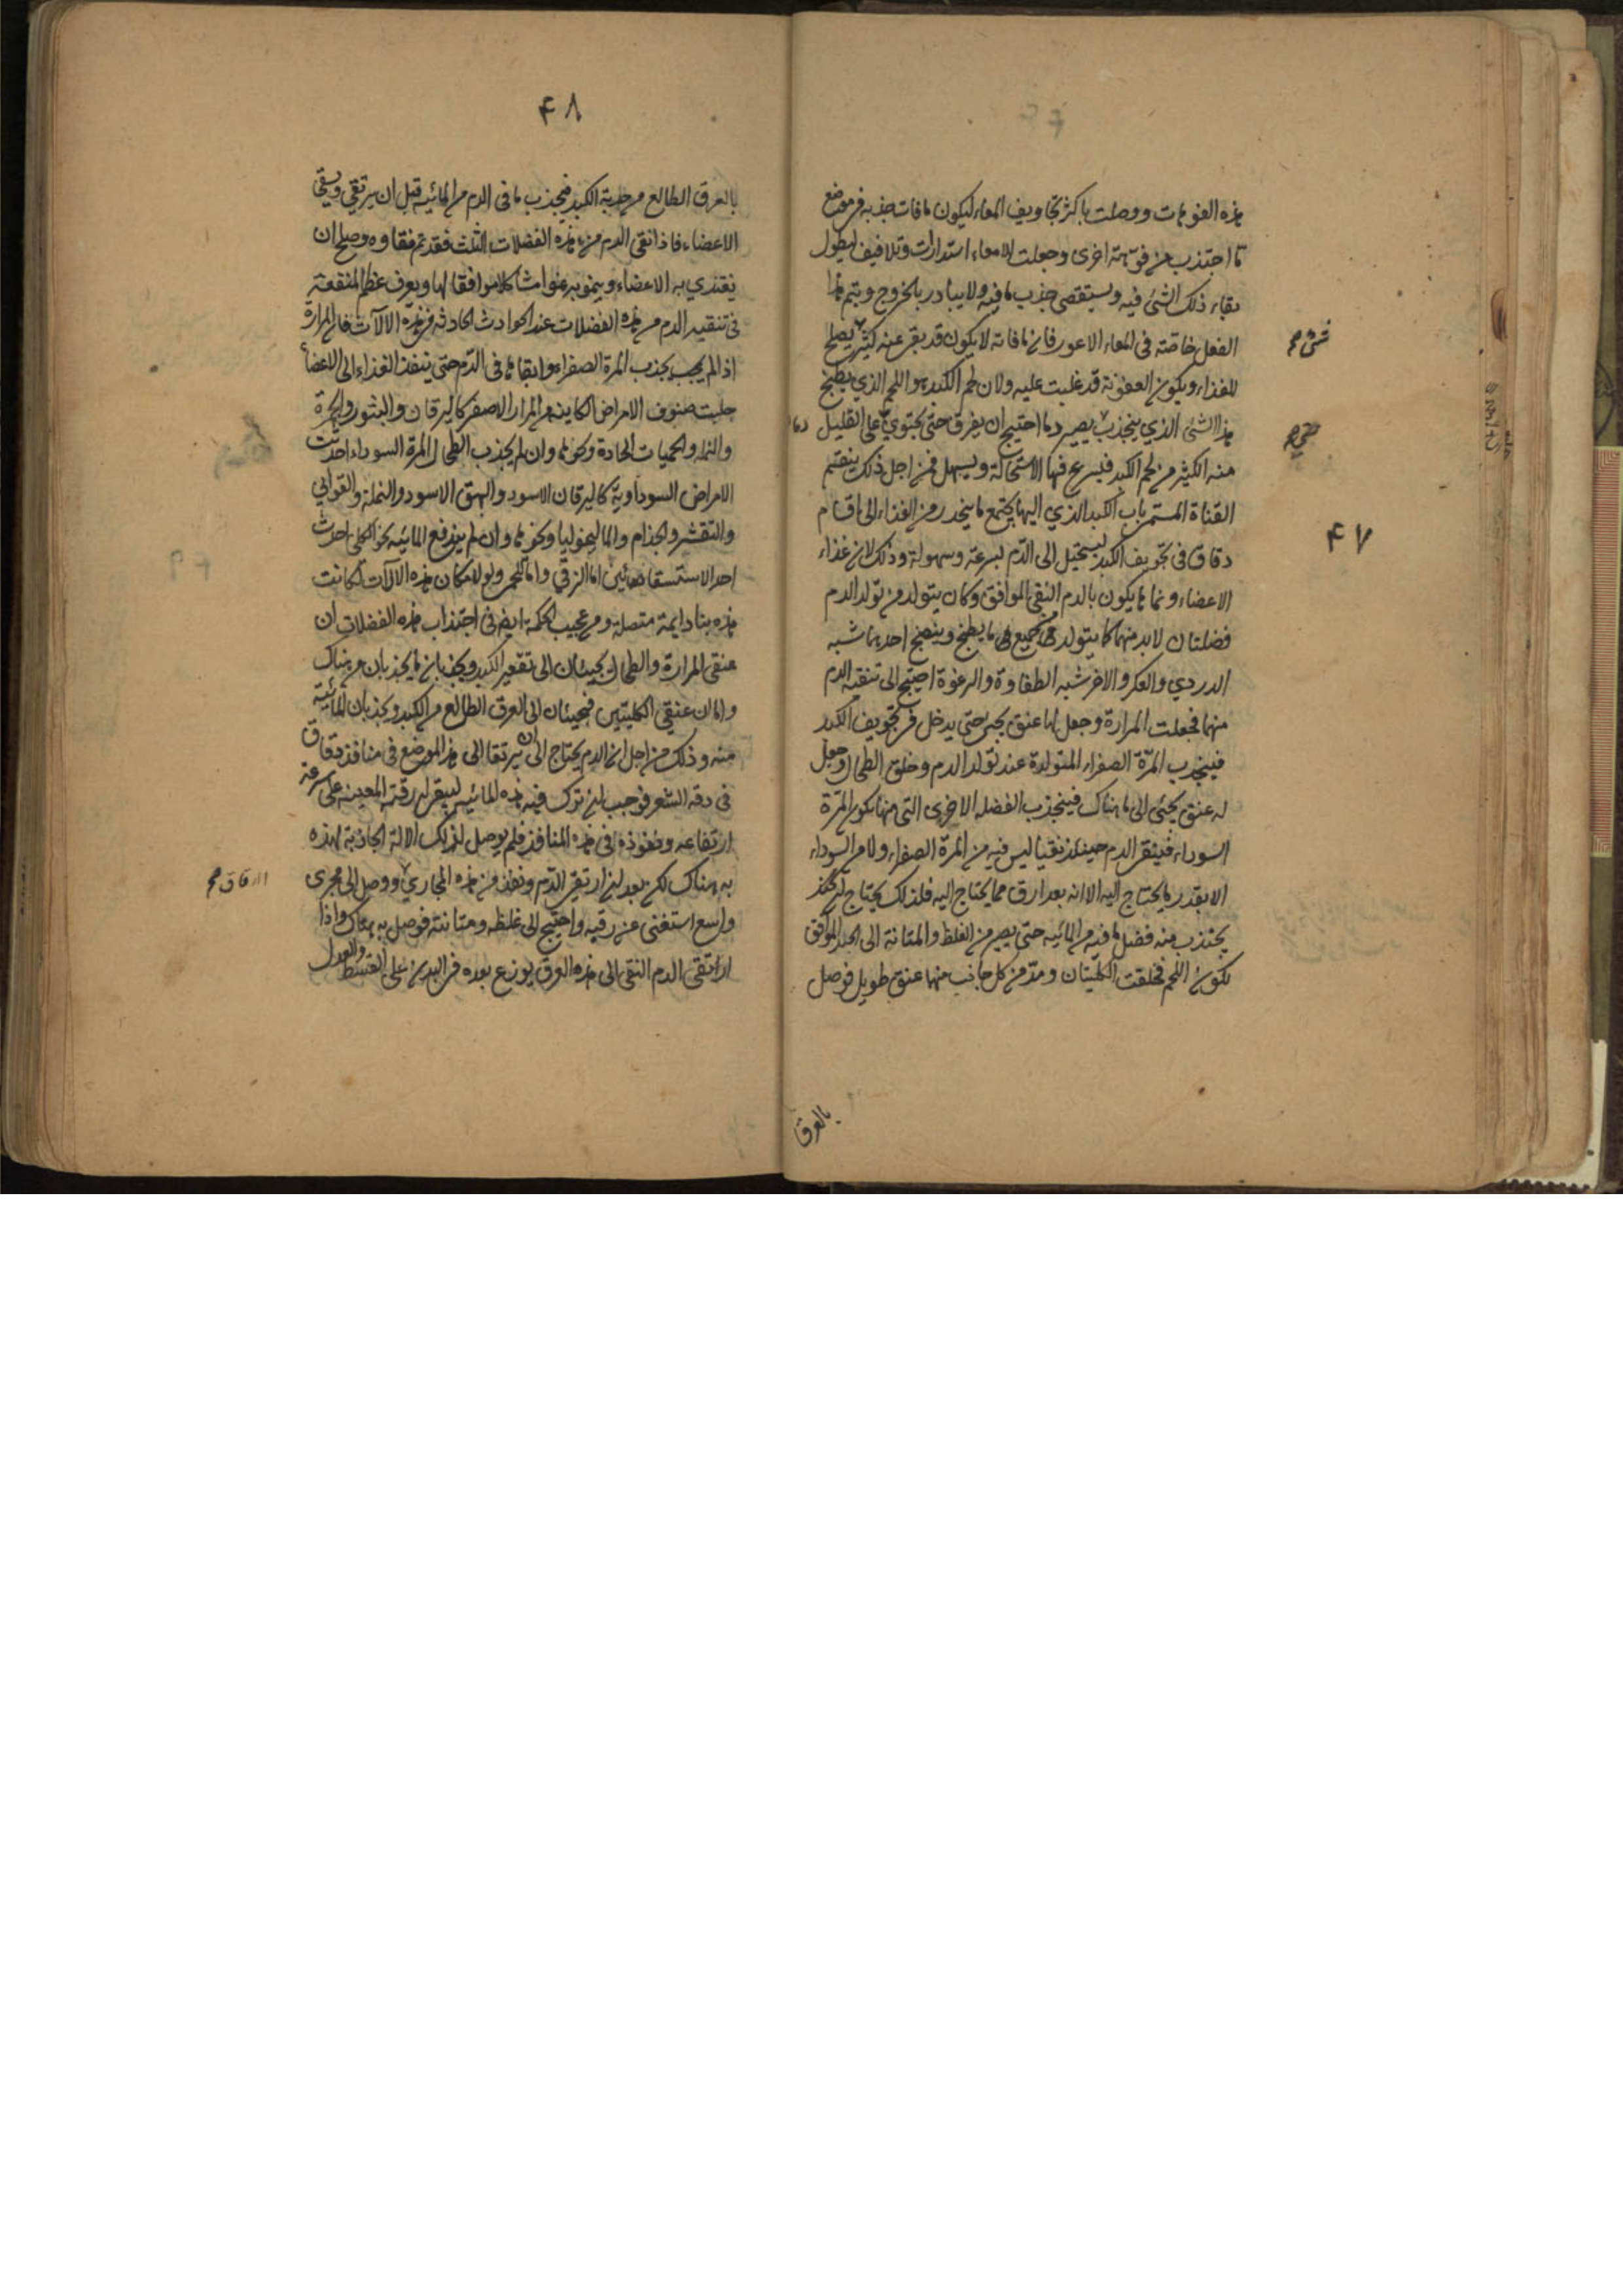 ۴۷
هذه الفوهات ووصلت باكثر تجاويف المعاء ليكون ما فات جذبه في موضع
ما اجتذب من فوهة اخرى وجعلت الامعاء استدارات وتلافيف ليطول
بقاء ذلك الشئ فيه ويستقصي جذب ما فيه ولا يبادر بالخروج ويتم هذا
الفعل خاصة في المعاء الاعور فان ما فاته لا يكون قد بقي عنه كثير يصلح
شئ صح
للغذاء ويكون العفونة قد غلبت عليه ولان لحم الكبد هو اللحم الذي يطبخ
هذا الشئ الذي ينجذب يصير دما احتيج ان يفرق حتى يحتوي على القليل
منه الكثير من لحم الكبد فيسرع فيها الاستحالة ويسهل فمن اجل ذلك ينقسم
القناة المستمر باب الكبد الذي اليها يجتمع ما ينحدر من الغذاء الى اقسام
دقاق في تجويف الكبد ليستحيل الى الدم بسرعة وسهولة وذلك لان غذاء
الاعضاء ونماها يكون بالدم النقي الموافق وكان يتولد من تولد الدم
فضلتان لابد منهما كما يتولد في جميع ما يطبخ وينضج احديهما شبه
الدردي والعكر والاخر شبه الطفاوة والرغوة احتيج الى تنقية الدم
منهما فجعلت المرارة وجعل لها عنق يجئ حتى يدخل في تجويف الكبد
فينجذب المرة الصفراء المتولدة عند تولد الدم وخلق الطحال وجعل
له عنق يجئ الى ما هناك فينجذب الفضلة الاخرى التي منها يكون المرة
السوداء فيبقى الدم حينئذ نقيا ليس فيه من المرة الصفراء ولا من السوداء
الا بقدر ما يحتاج اليه الا انه بعد ارق مما يحتاج اليه فلذلك يحتاج
يجتذب منه فضل ما فيه من المائية حتى يصير من الغلظ والمتانة الى الحد الموافق
لكون اللحم فخلقت الكليتان ومد من كل جانب منهما عنق طويل فوصل
بالعرق
۴۸
بالعرق الطالع من حدبة الكبد فيجذب ما في الدم من المائية قبل ان يرتقي ويسقي
الاعضاء فاذا نقي الدم من هذه الفضلات الثلث فقد تم نقاوه وصلح ان
يغتذي به الاعضاء وينمو به نموا مشاكلا موافقا لها ويعرف عظم المنفعة
في تنقية الدم من هذه الفضلات عند الحوادث الحادثة في هذه الالات فان المرارة
اذا لم يجب بجذب المرة الصفراء وابقاها في الدم حتى ينفذ الغذاء الى الاعضاء
جلبت صنوف الامراض الكاينة من المرار الاصفر كاليرقان والبثور والحمرة
والنملة والحميات الحادة ونحوها وان لم يجذب الطحال المرة السوداء احدثت
الامراض السوداوية كاليرقان الاسود والبهق الاسود والنملة والقوابي
والتقشر والجذام والماليخوليا ونحوها وان لم يندفع المائية نحو الكلى احدث
احد الاستسقائين اما الزقي واما اللحمي ولولا مكان هذه الالات لكانت
هذه بنا دايمة متصلة ومن عجيب الحكمة ايضا في اجتذاب هذه الفضلات ان
عنقي المرارة والطحال يجيئان الى تقعير الكبد ويجذبان ما يجذبان من هناك
واما ان عنقي الكليتين فيجيئان الى العرق الطالع من الكبد ويجذبان المائية
منه وذلك من اجل ان الدم يحتاج الى ان يرتقا الى هذا الموضع في منافذ دقاق
في دقة الشعر فوجب ان ترك فيه هذه المائية ليبقى له رقته المعينة على سرعة
ارتفاعه ونفوذه في هذه المنافذ فلم يوصل لذلك الالة الجاذبة لهذه
به هناك لكن بعد ان ارتقى الدم ونفذ من هذه المجاري ووصل الى مجرى
واسع استغنى عن رقيه واحتيج الى غلظه ومتانته فوصل به هناك واذا
ارتقى الدم النقي الى هذه العرق يوزع بعده في البدن على القسط والعدل